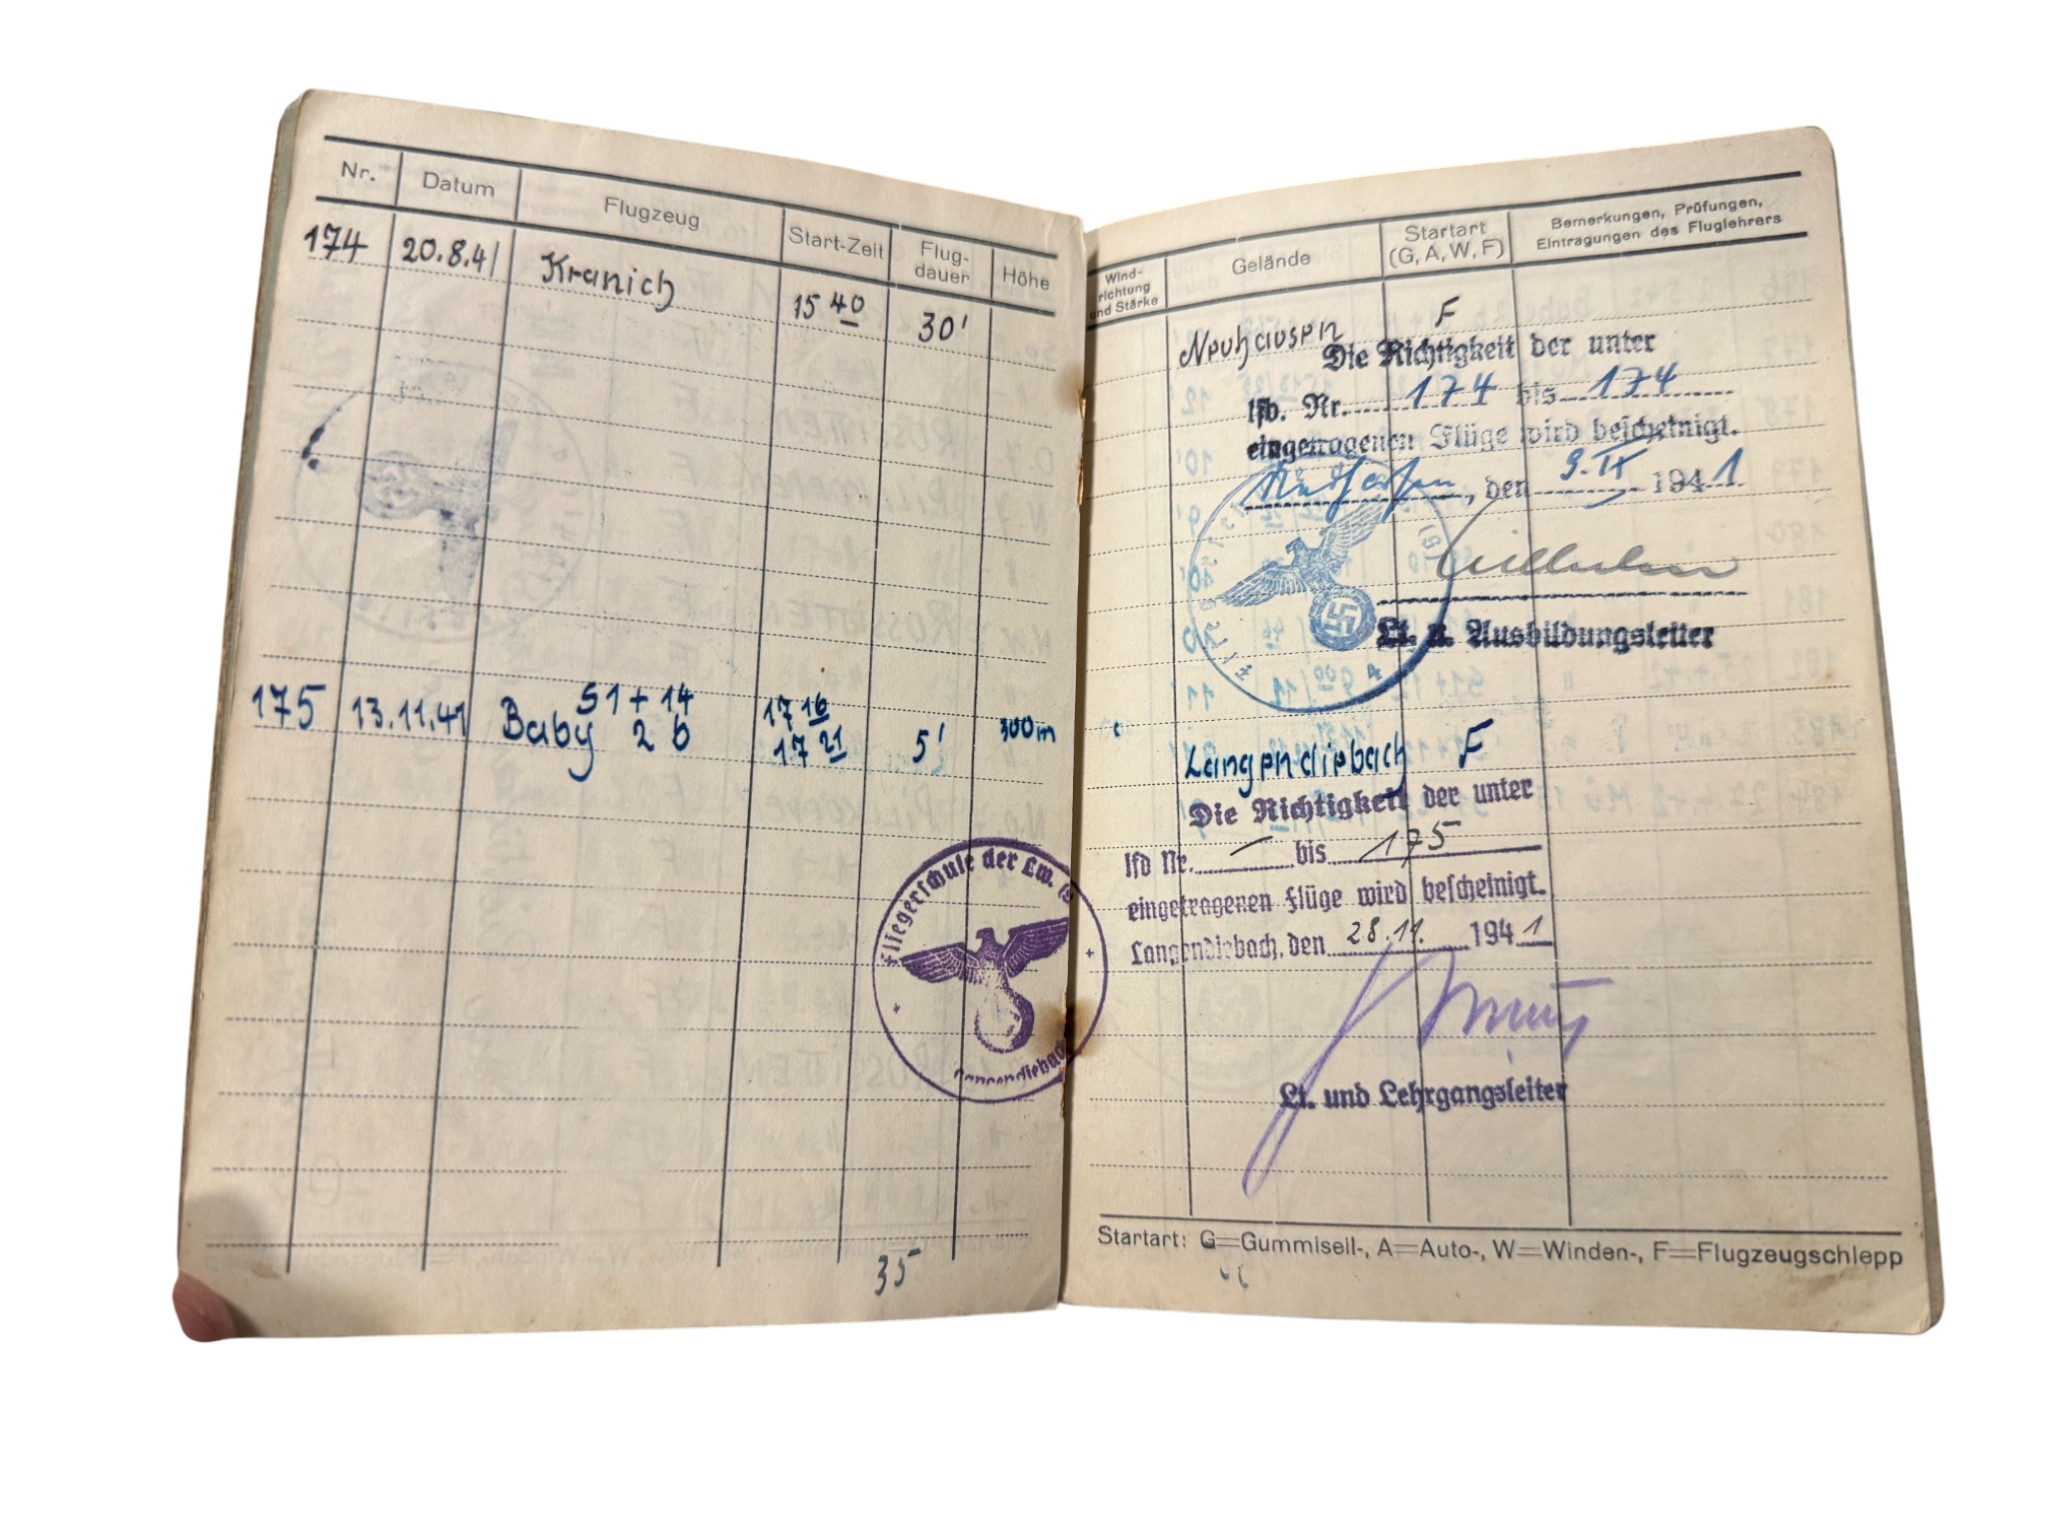 Nr. Datum Flugzeug Start-Zeit Flug-dauer Höhe
174 20.8.41 Kranich 15 40 30'
175 13.11.41 Baby 2 b 51 + 14 17 16 17 21 5' 300m
Fliegerschule der Lw.
Langendiebach
35
Wind-richtung und Stärke Gelände Startart (G, A, W, F) Bemerkungen, Prüfungen, Eintragungen des Fluglehrers
Neuhausen F
Die Richtigkeit der unter
lfd. Nr. 174 bis 174
eingetragenen Flüge wird bescheinigt.
Neuhausen, den 9.IX 1941
Lt. u. Ausbildungsleiter
Langendiebach F
Die Richtigkeit der unter
lfd Nr. — bis 175
eingetragenen Flüge wird bescheinigt.
Langendiebach, den 28.11. 1941
Lt. und Lehrgangsleiter
Startart: G=Gummiseil-, A=Auto-, W=Winden-, F=Flugzeugschlepp